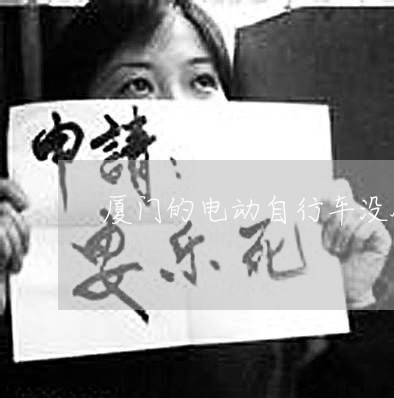 申請：
厦门的电动自行车没
安乐死